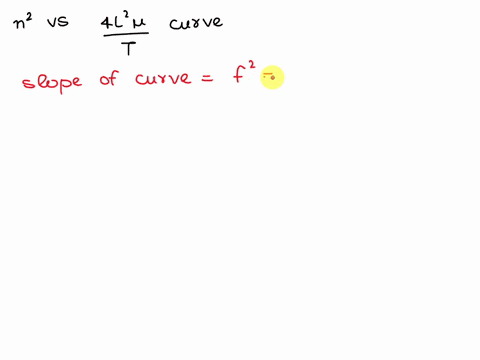 n² vs 4L²μ/T curve
slope of curve = f² =